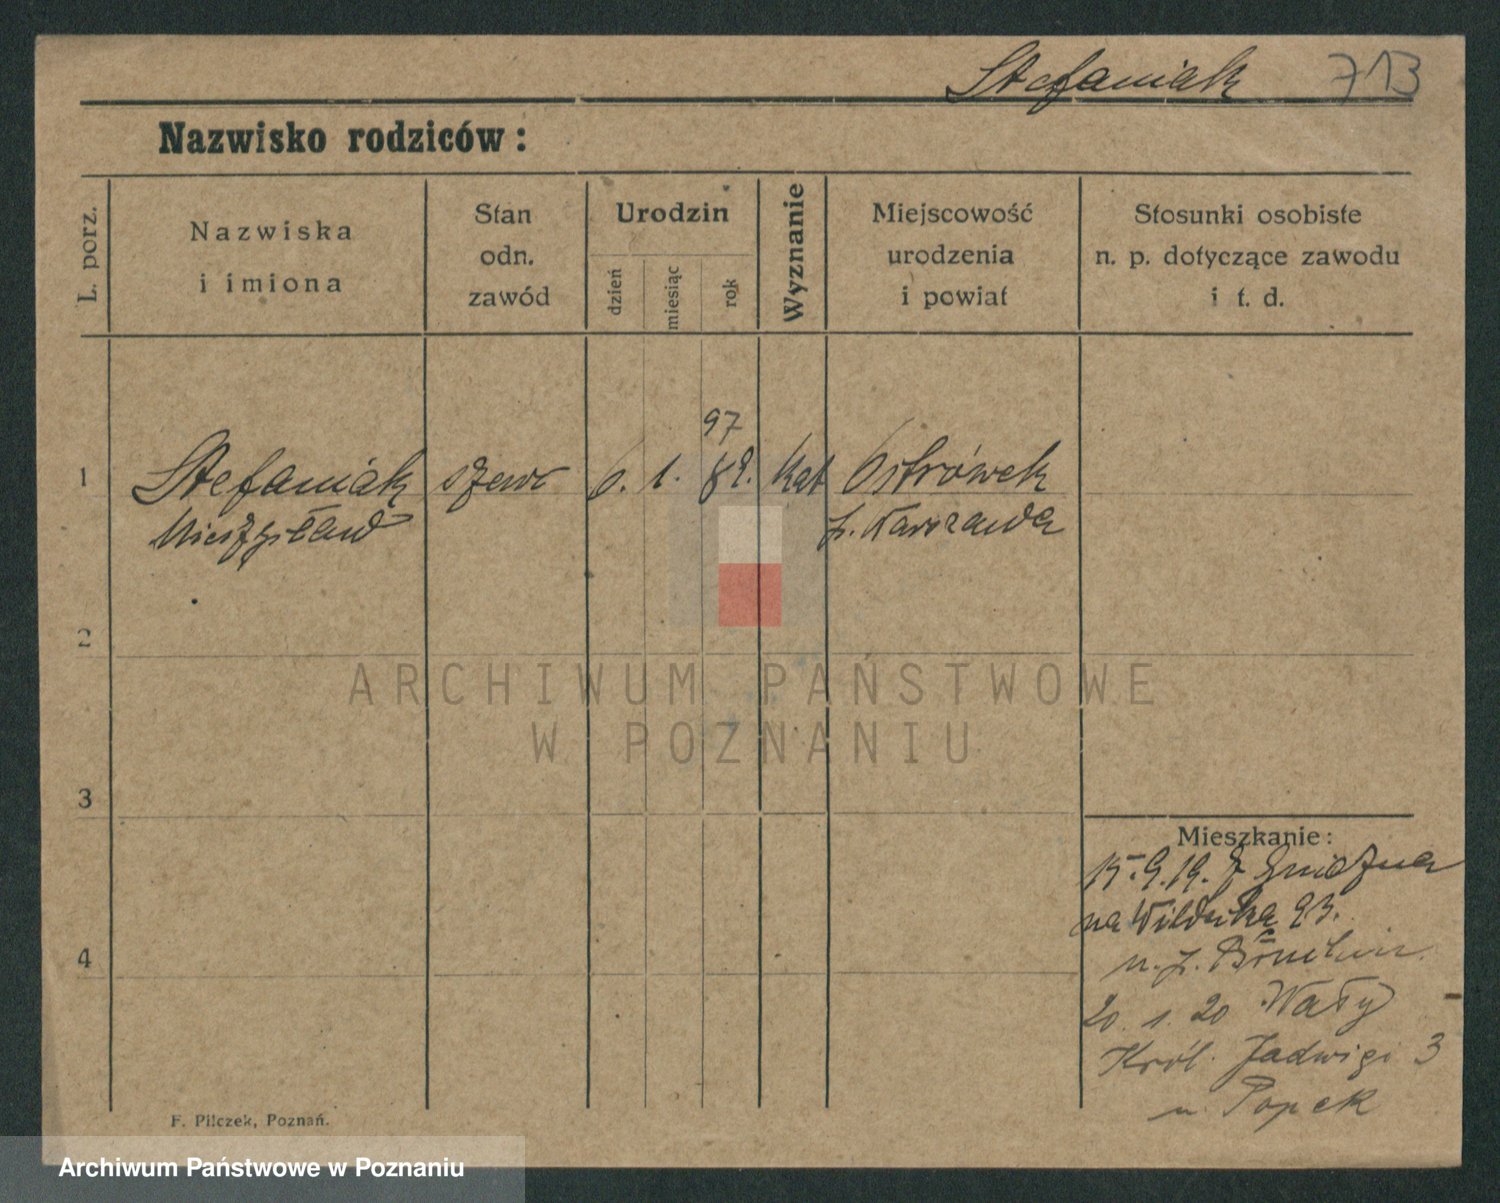 Stefaniak 713
Nazwisko rodziców:
L. porz.
Nazwiska
i imiona
Stan
odn.
zawód
Urodzin
dzień
miesiąc
rok
Wyznanie
Miejscowość
urodzenia
i powiat
Stosunki osobiste
n. p. dotyczące zawodu
i t. d.
97
1 Stefaniak szewc 6. 1. 82. Kat Ostrówek
Mieczysław p. Warszawa
2
ARCHIWUM PAŃSTWOWE
W POZNANIU
3
Mieszkanie:
15.9.19. z Gniezna
na Wildzka 93.
u. p.
4
20. 1. 20 Wały
Król. Jadwigi 3
u. Popek
F. Pilczek, Poznań.
Archiwum Państwowe w Poznaniu